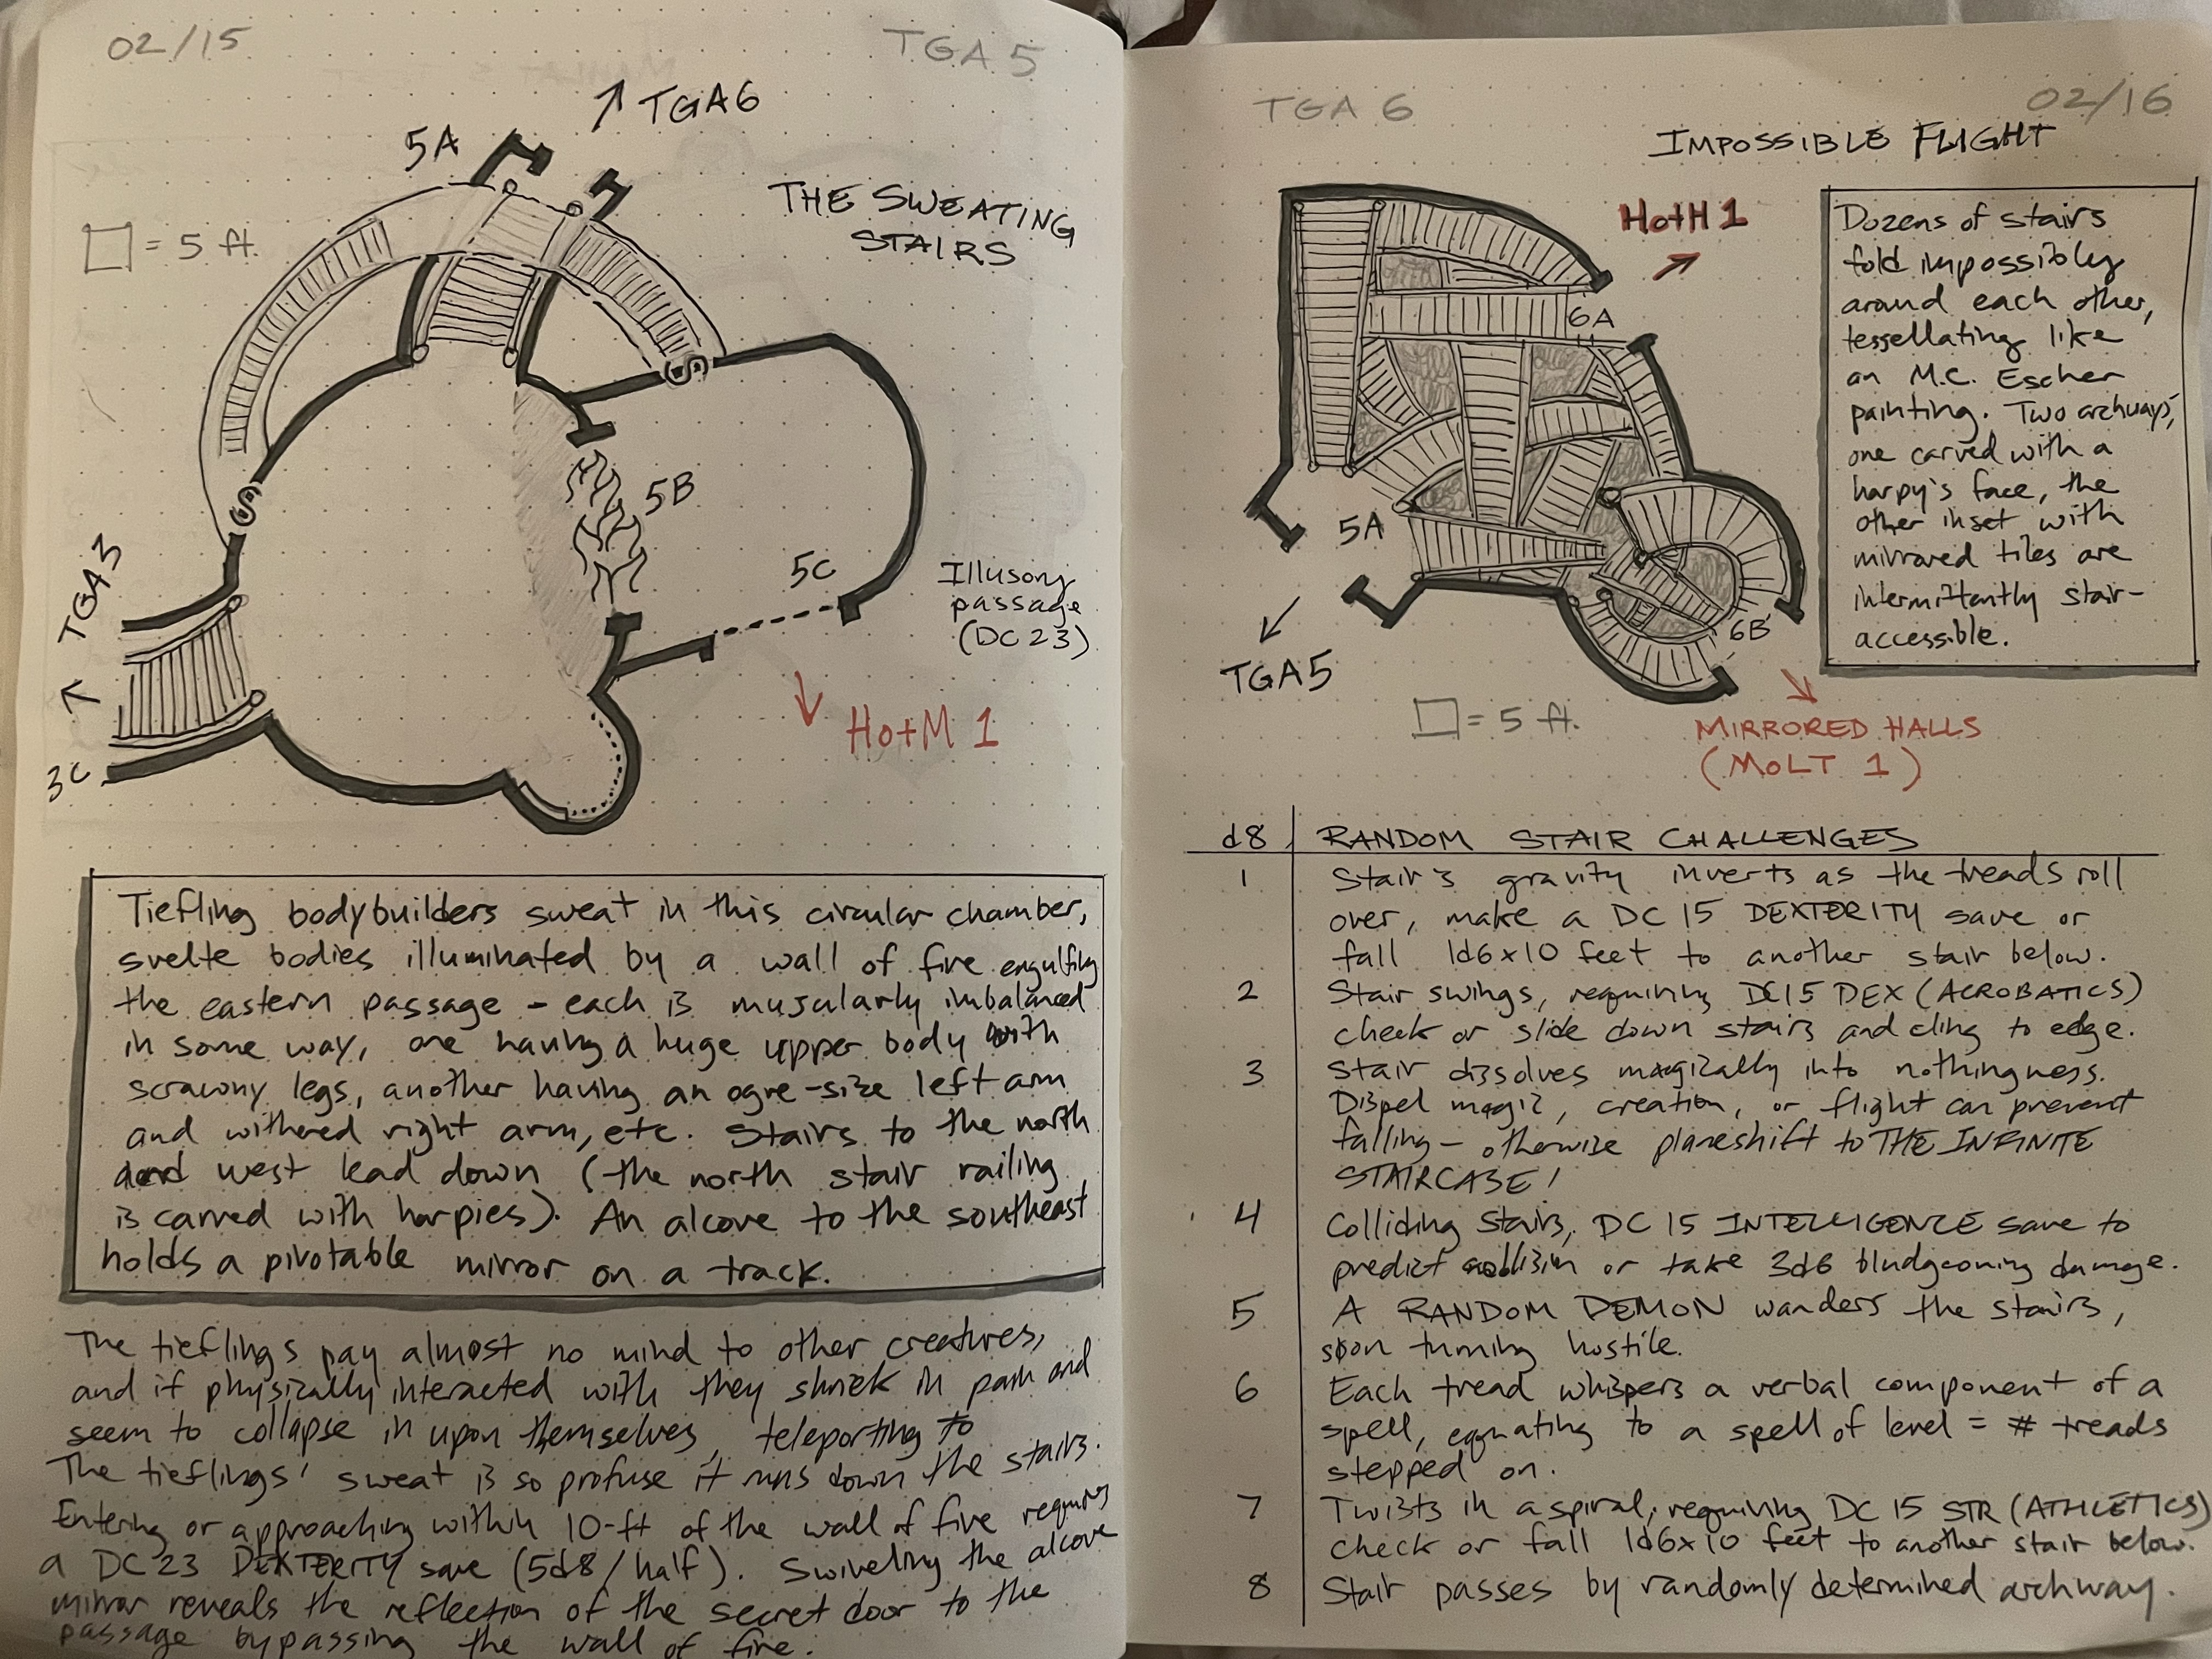 02/15
TGA 5
↗ TGA6
5A
THE SWEATING
STAIRS
□ = 5 ft.
S
S
5B
5C
Illusory
passage
(DC 23)
TGA3
↑
3C
↓ HotM 1
Tiefling bodybuilders sweat in this circular chamber,
svelte bodies illuminated by a wall of fire engulfing
the eastern passage - each is muscularly imbalanced
in some way, one having a huge upper body with
scrawny legs, another having an ogre-size left arm
and withered right arm, etc. Stairs to the north
and west lead down (the north stair railing
is carved with harpies). An alcove to the southeast
holds a pivotable mirror on a track.
The tieflings pay almost no mind to other creatures,
and if physically interacted with they shriek in pain and
seem to collapse in upon themselves, teleporting to
The tieflings' sweat is so profuse it runs down the stairs.
Entering or approaching within 10-ft of the wall of fire requires
a DC 23 DEXTERITY save (5d8/half). Swiveling the alcove
mirror reveals the reflection of the secret door to the
passage bypassing the wall of fire.
TGA 6
02/16
IMPOSSIBLE FLIGHT
HotH 1
↗
6A
5A
6B
↙
TGA5
□ = 5 ft.
↘
MIRRORED HALLS
(MoLT 1)
Dozens of stairs
fold impossibly
around each other,
tessellating like
an M.C. Escher
painting. Two archways,
one carved with a
harpy's face, the
other inset with
mirrored tiles are
intermittently stair-
accessible.
d8 RANDOM STAIR CHALLENGES
1 Stair's gravity inverts as the treads roll
over, make a DC 15 DEXTERITY save or
fall 1d6x10 feet to another stair below.
2 Stair swings, requiring DC15 DEX (ACROBATICS)
check or slide down stairs and cling to edge.
3 Stair dissolves magically into nothingness.
Dispel magic, creation, or flight can prevent
falling - otherwise planeshift to THE INFINITE
STAIRCASE!
4 Colliding stairs, DC 15 INTELLIGENCE save to
predict collision or take 3d6 bludgeoning damage.
5 A RANDOM DEMON wanders the stairs,
soon turning hostile.
6 Each tread whispers a verbal component of a
spell, equating to a spell of level = # treads
stepped on.
7 Twists in a spiral, requiring DC 15 STR (ATHLETICS)
check or fall 1d6x10 feet to another stair below.
8 Stair passes by randomly determined archway.